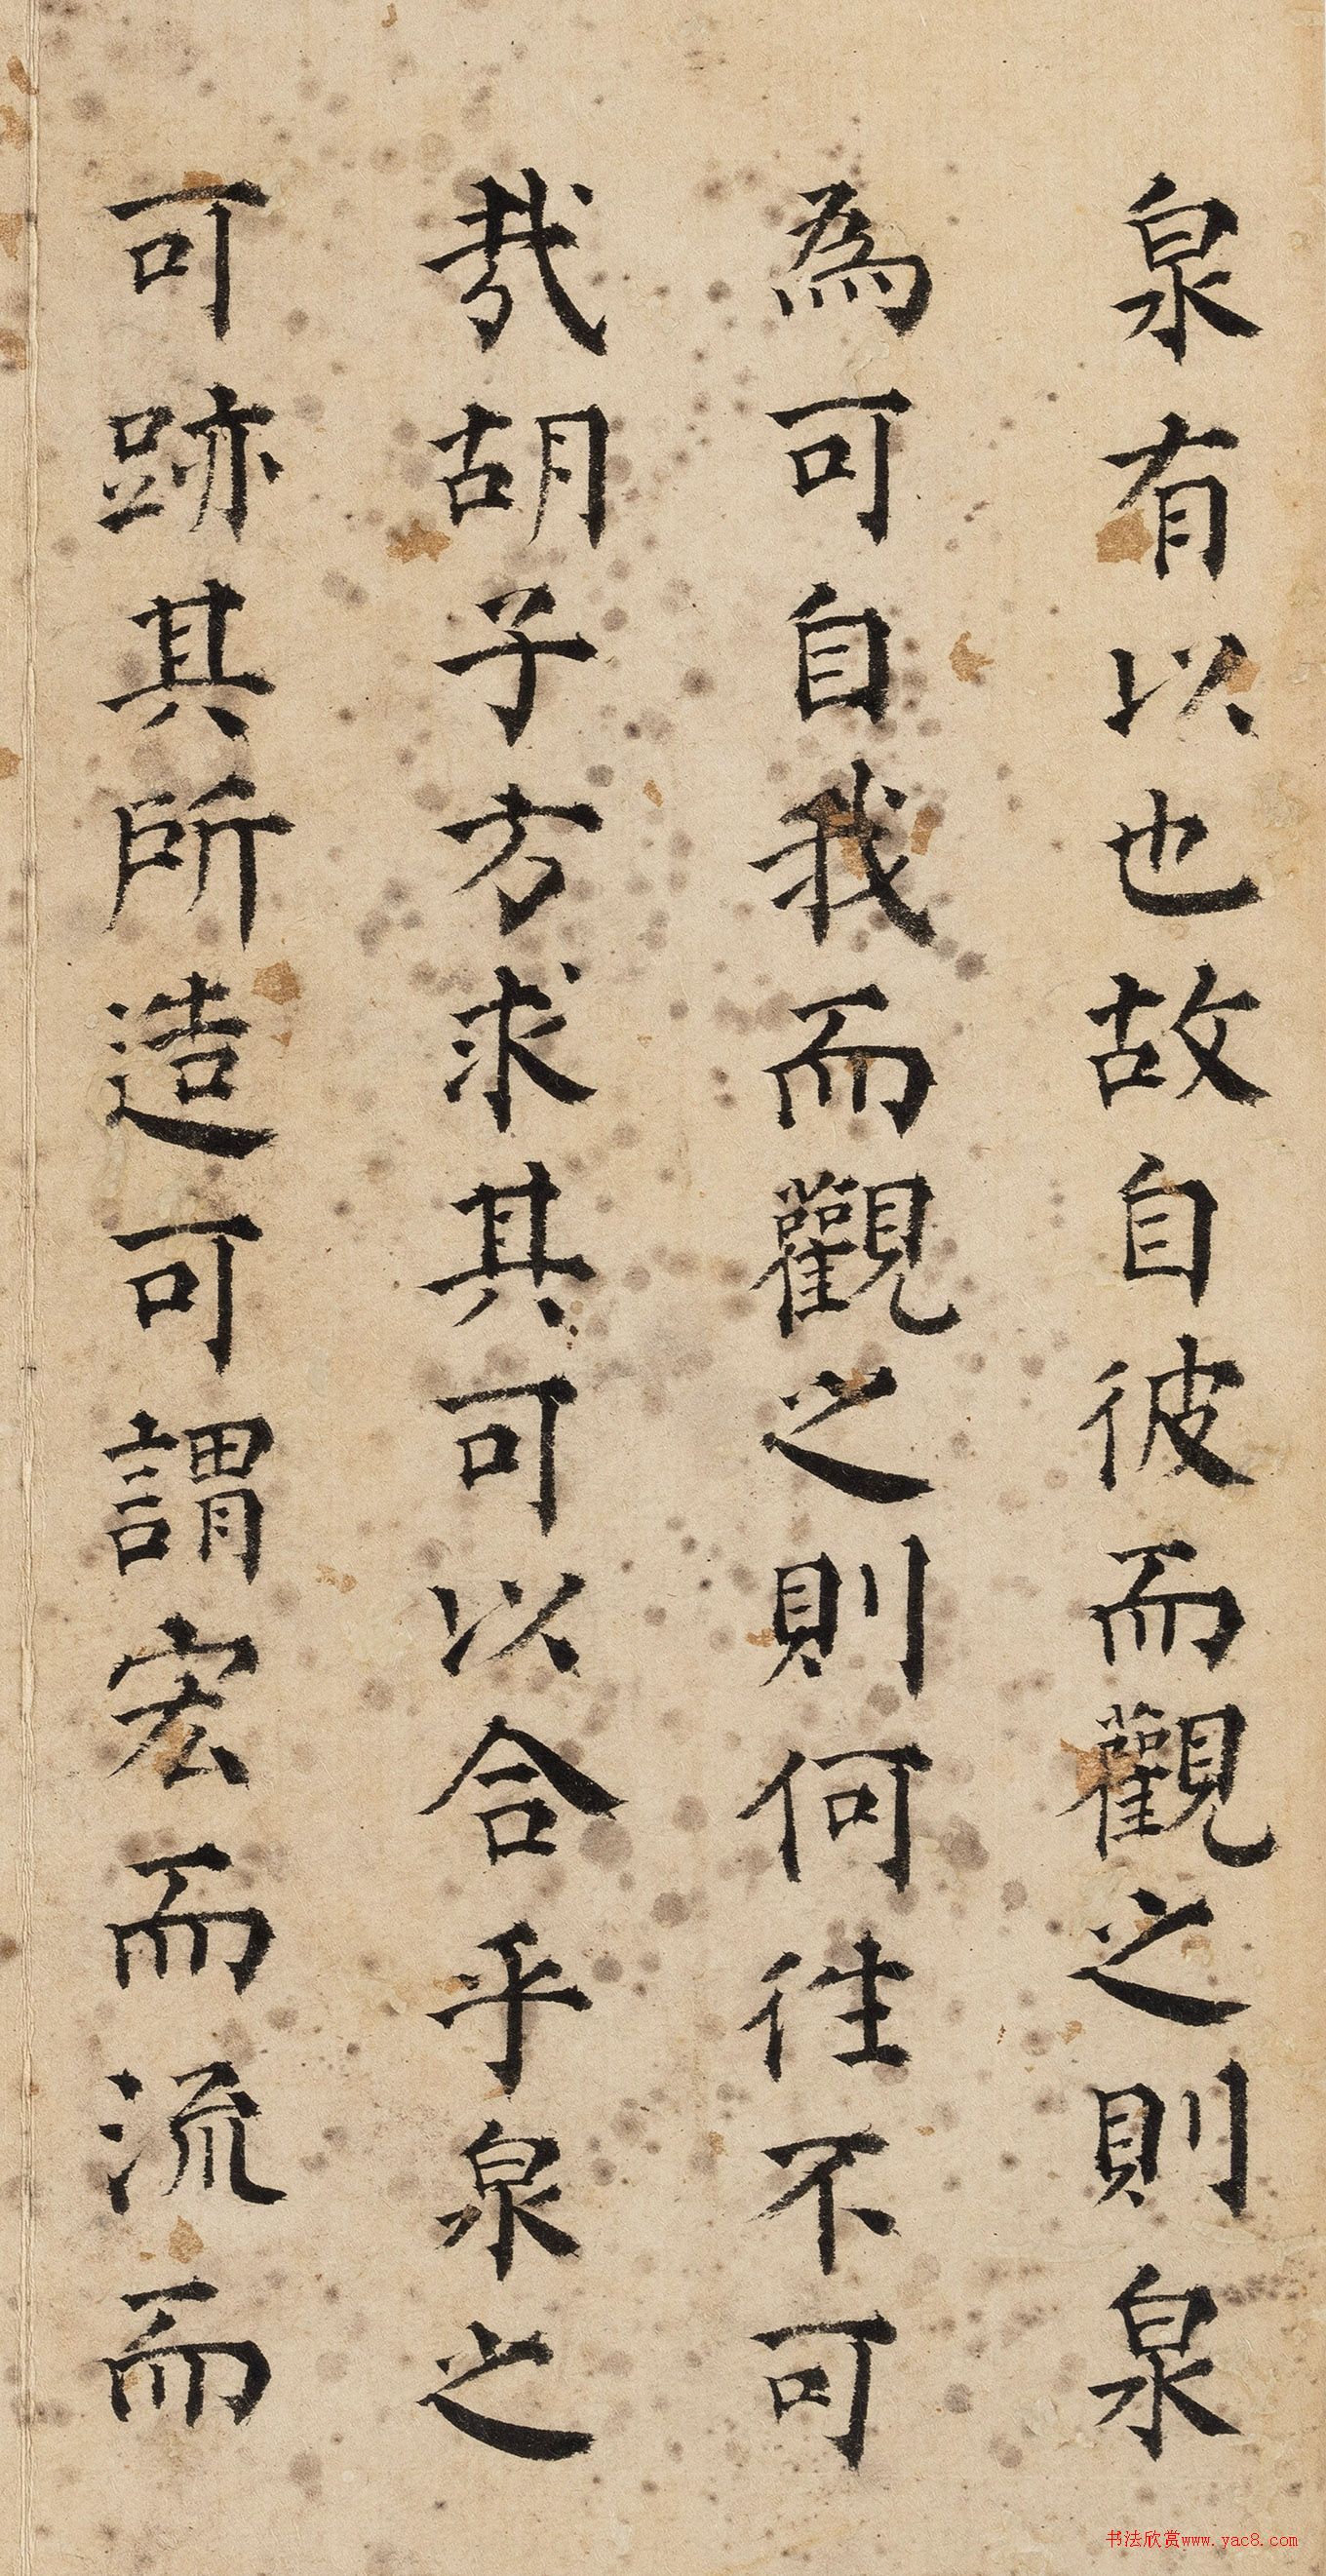 泉有以也故自彼而觀之則泉
為可自我而觀之則何往不可
哉胡子方求其可以合乎泉之
可跡其所造可謂宏而流而
书法欣赏www.yac8.com